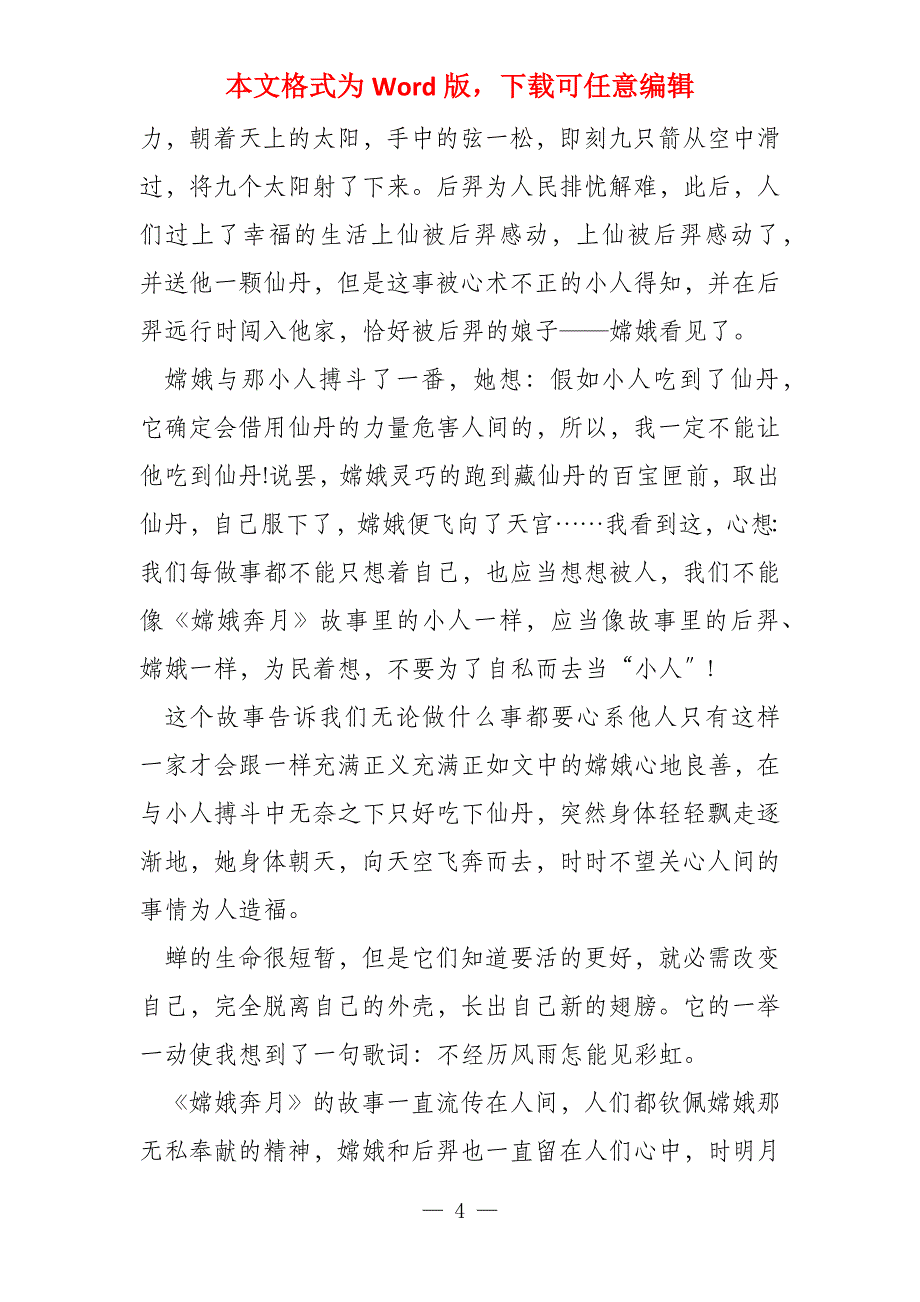 本文格式为 Word 版，下载可任意编辑
力，朝着天上的太阳，手中的弦一松，即刻九只箭从空中滑
过，将九个太阳射了下来。后羿为人民排忧解难，此后，人
们过上了幸福的生活上仙被后羿感动，上仙被后羿感动了，
并送他一颗仙丹，但是这事被心术不正的小人得知，并在后
羿远行时闯入他家，恰好被后羿的娘子——嫦娥看见了。
嫦娥与那小人搏斗了一番，她想：假如小人吃到了仙丹，
它确定会借用仙丹的力量危害人间的，所以，我一定不能让
他吃到仙丹!说罢，嫦娥灵巧的跑到藏仙丹的百宝匣前，取出
仙丹，自己服下了，嫦娥便飞向了天宫……我看到这，心想：
我们每做事都不能只想着自己，也应当想想被人，我们不能
像《嫦娥奔月》故事里的小人一样，应当像故事里的后羿、
嫦娥一样，为民着想，不要为了自私而去当“小人”！
这个故事告诉我们无论做什么事都要心系他人只有这样
一家才会跟一样充满正义充满正如文中的嫦娥心地良善，在
与小人搏斗中无奈之下只好吃下仙丹，突然身体轻轻飘走逐
渐地，她身体朝天，向天空飞奔而去，时时不望关心人间的
事情为人造福。
蝉的生命很短暂，但是它们知道要活的更好，就必需改变
自己，完全脱离自己的外壳，长出自己新的翅膀。它的一举
一动使我想到了一句歌词：不经历风雨怎能见彩虹。
《嫦娥奔月》的故事一直流传在人间，人们都钦佩嫦娥那
无私奉献的精神，嫦娥和后羿也一直留在人们心中，时明月
— 4 —